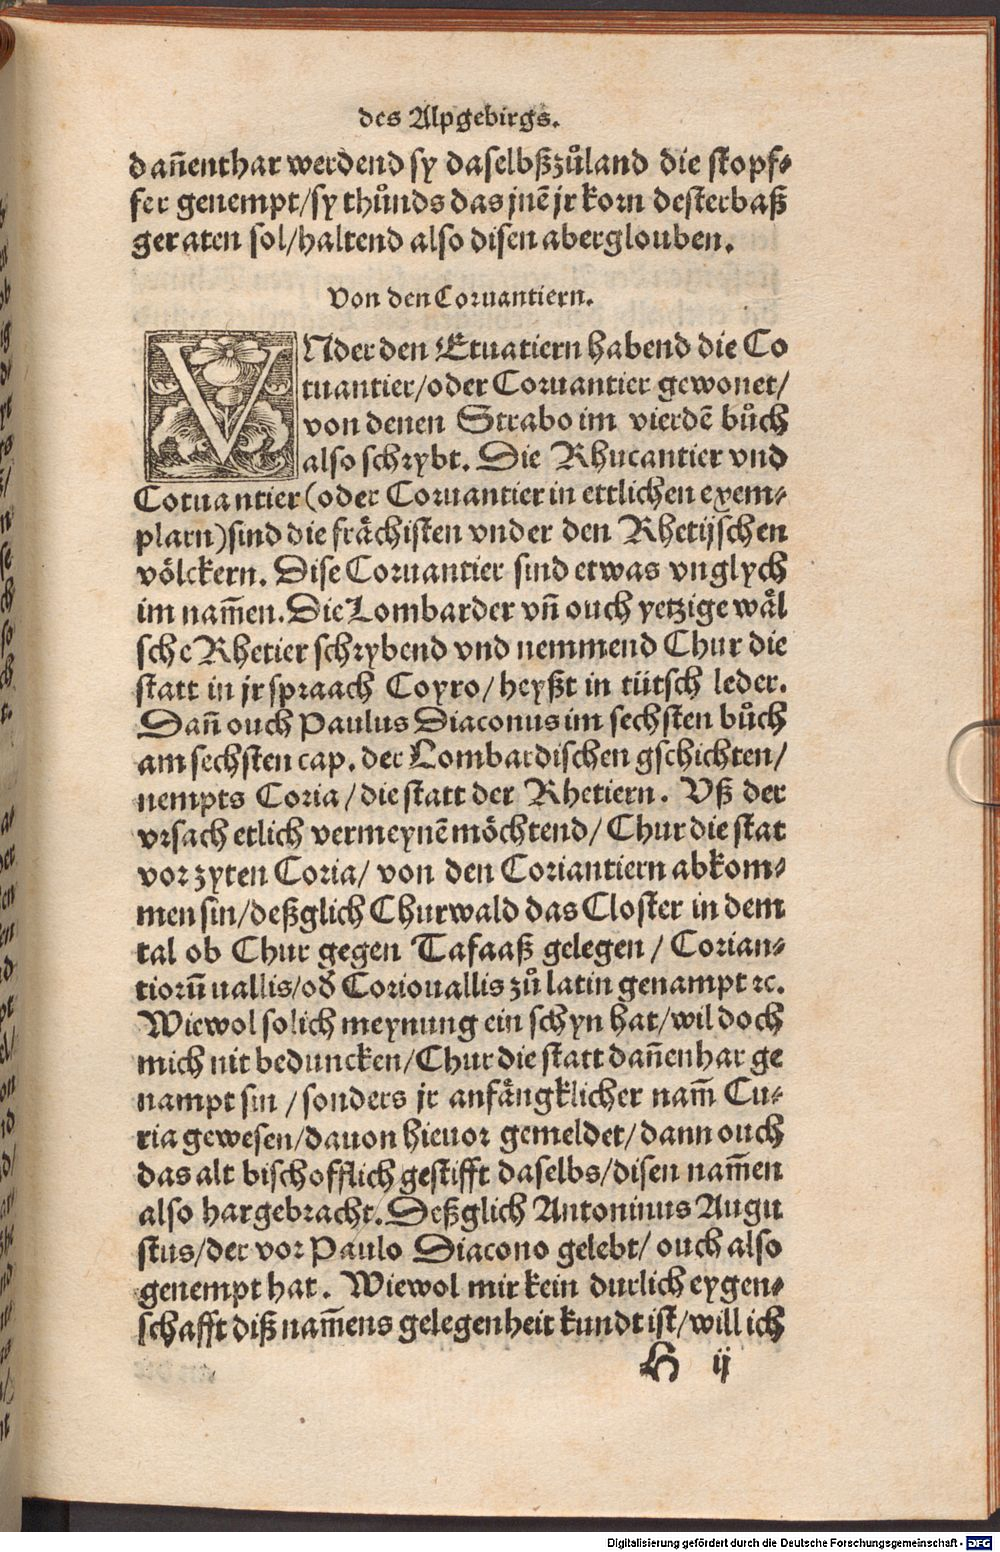 des Alpgebirgs.
dañenthar werdend sy daselbßzůland die stopf-
fer genempt/sy thůnds das jnē jr korn desterbaß
geraten sol/haltend also disen aberglouben.
Von den Coruantiern.
VNder den Etuatiern habend die Co
tuantier/oder Coruantier gewonet/
von denen Strabo im vierdē bůch
also schrybt. Die Rhucantier vnd
Cotuantier (oder Coruantier in ettlichen exem-
plarn) sind die fråchisten vnder den Rhetijschen
völckern. Dise Coruantier sind etwas vnglych
im nam̄en. Die Lombarder vñ ouch yetzige wål
sche Rhetier schrybend vnd nemmend Chur die
statt in jr spraach Coyro/heyßt in tütsch leder.
Dañ ouch Paulus Diaconus im sechsten bůch
am sechsten cap. der Lombardischen gschichten/
nempts Coria/die statt der Rhetiern. Vß der
vrsach etlich vermeynē möchtend/Chur die stat
vor zyten Coria/von den Coriantiern abkom-
men sin/deßglich Churwald das Closter in dem
tal ob Chur gegen Tafaaß gelegen/Corian-
tiorū uallis/oð Coriouallis zů latin genampt ꝛc.
Wiewol solich meynung ein schyn hat/wil doch
mich nit beduncken/Chur die statt dañenhar ge
nampt sin/sonders jr anfångklicher nam̄ Cu-
ria gewesen/dauon hieuor gemeldet/dann ouch
das alt bischofflich gestifft daselbs/disen nam̄en
also hargebracht. Deßglich Antoninus Augu
stus/der vor Paulo Diacono gelebt/ouch also
genempt hat. Wiewol mir kein durlich eygen-
schafft diß nam̄ens gelegenheit kundt ist/will ich
H ij
Digitalisierung gefördert durch die Deutsche Forschungsgemeinschaft - DFG